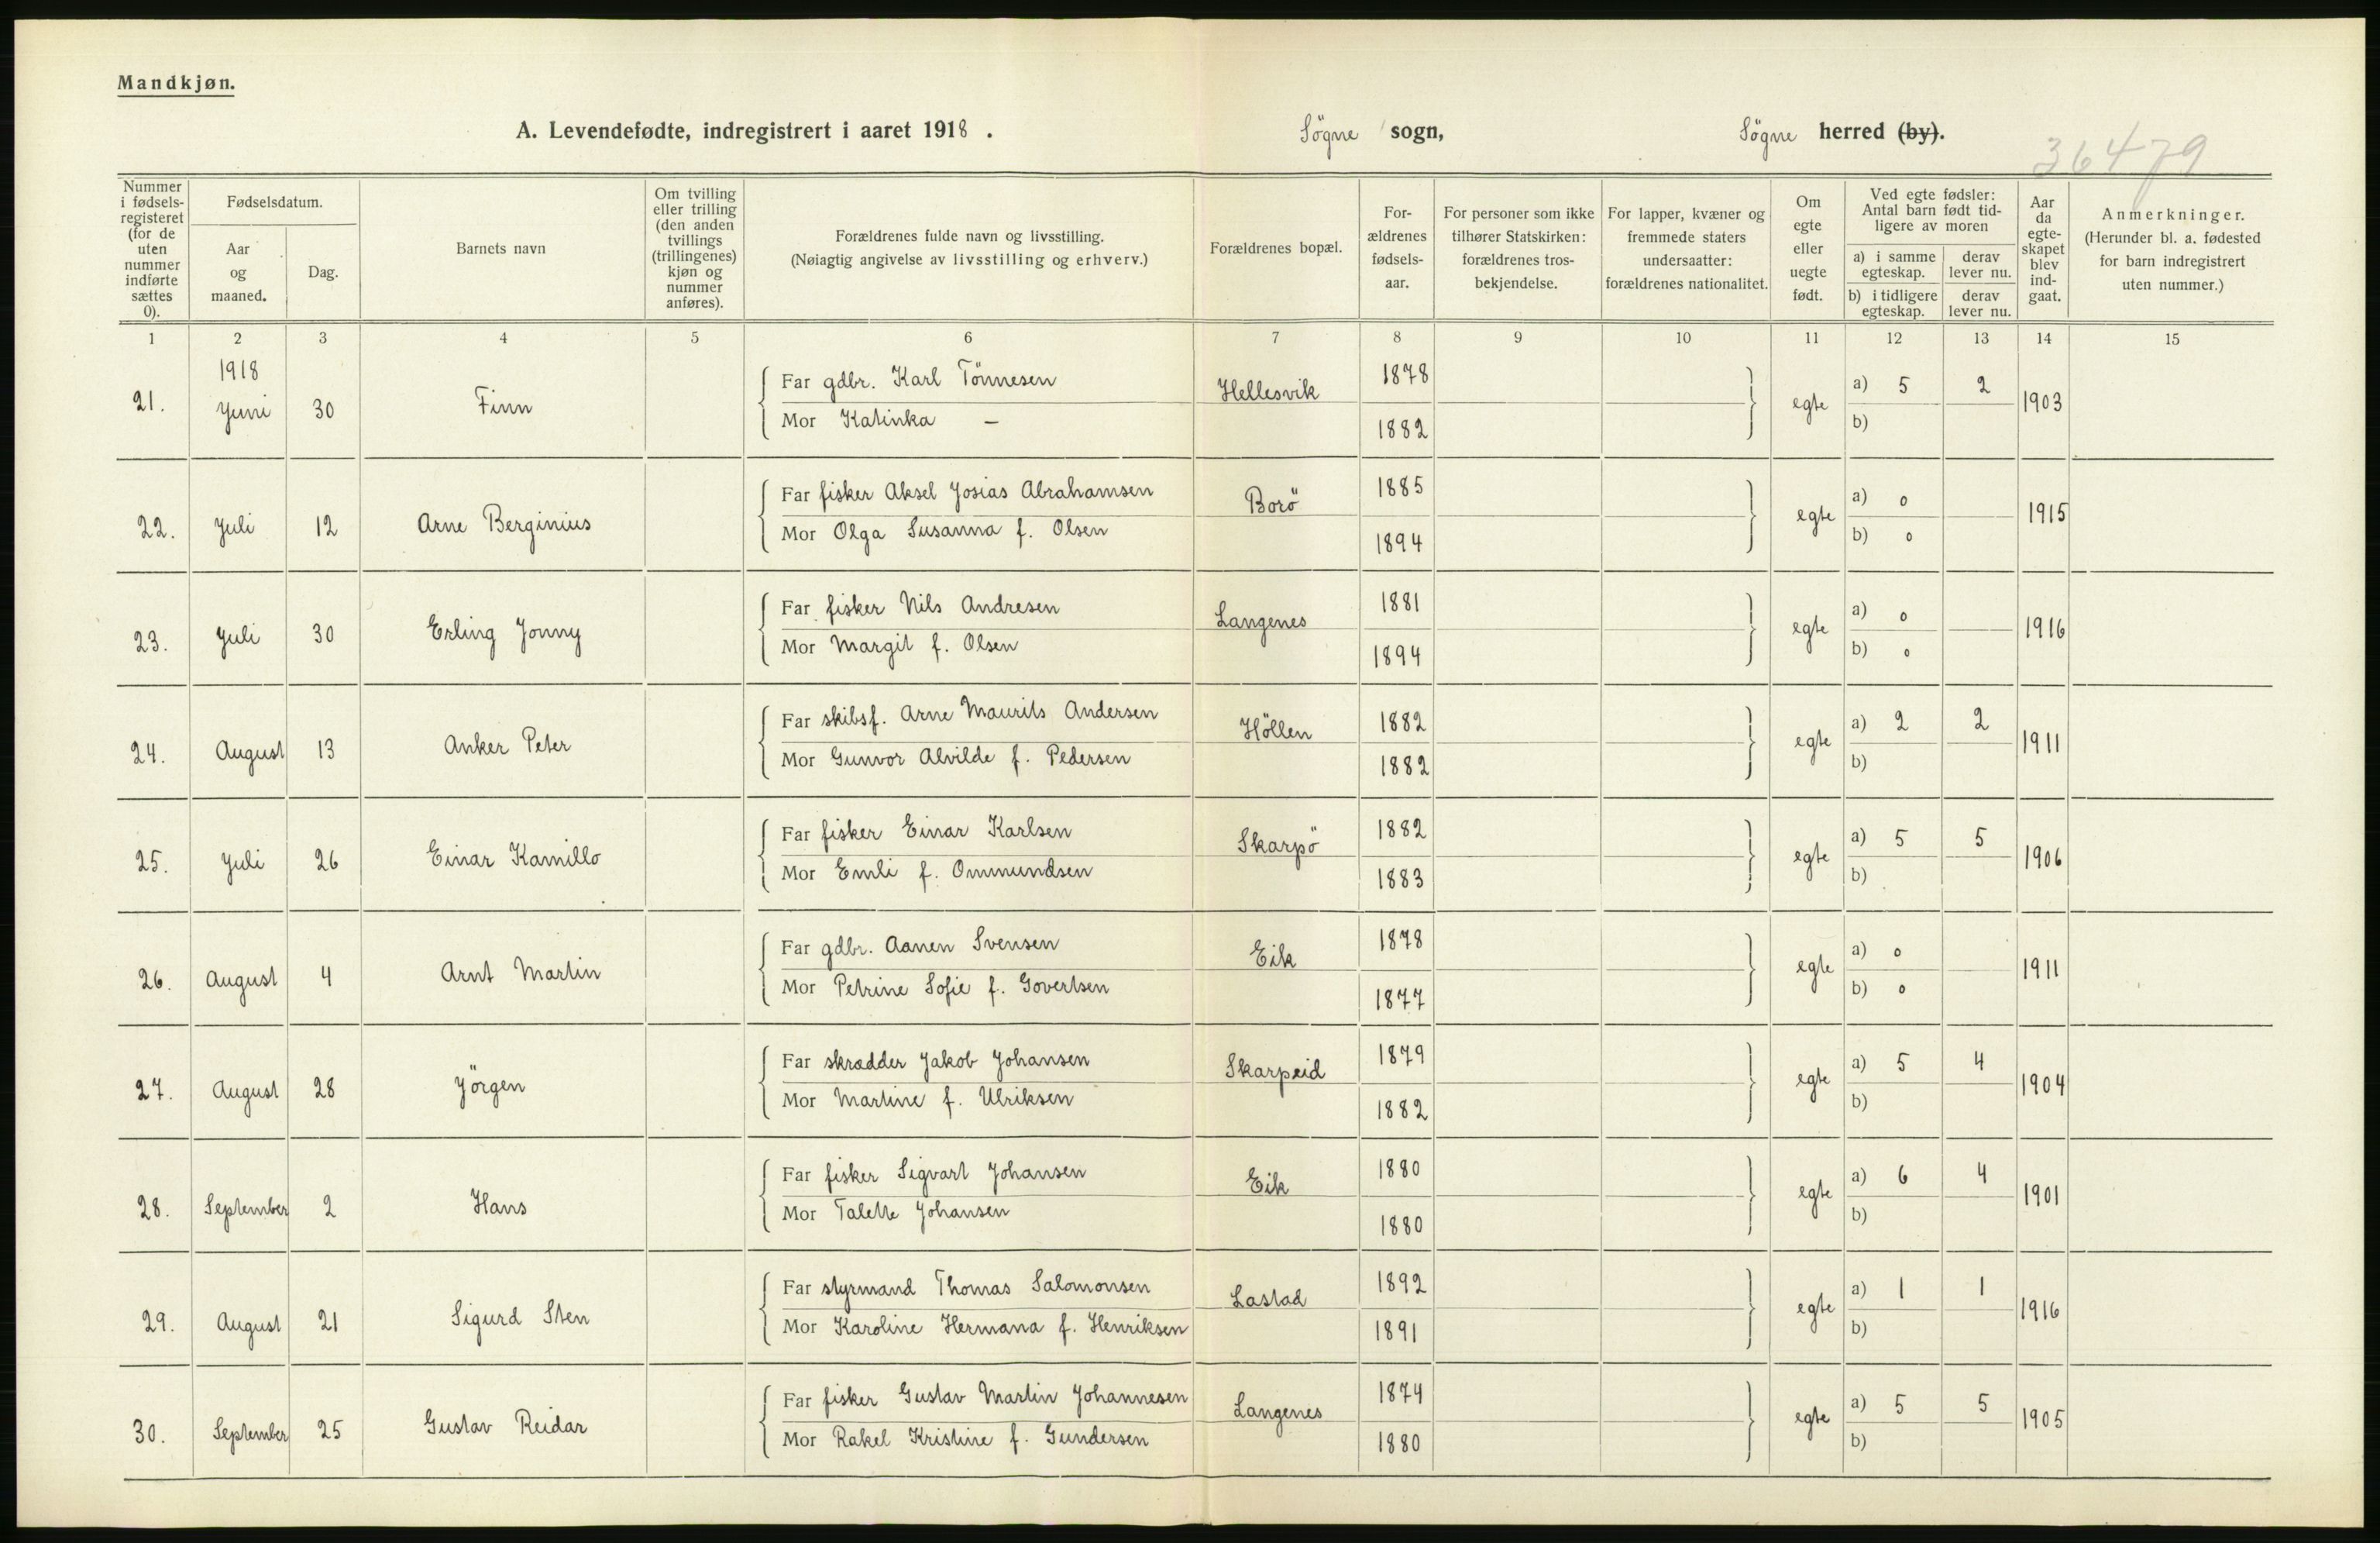 Mandkjøn.
A. Levendefødte, indregistrert i aaret 1918. Søgne sogn, Søgne herred (by).
36479
Nummer i fødsels-registeret (for de uten nummer indførte sættes 0).
Fødselsdatum.
Aar og maaned.
Dag.
Barnets navn
Om tvilling eller trilling (den anden tvillings (trillingenes) kjøn og nummer anføres).
Forældrenes fulde navn og livsstilling.
(Nøiagtig angivelse av livsstilling og erhverv.)
Forældrenes bopæl.
For-ældrenes fødsels-aar.
For personer som ikke tilhører Statskirken: forældrenes tros-bekjendelse.
For lapper, kvæner og fremmede staters undersaatter: forældrenes nationalitet.
Om egte eller uegte født.
Ved egte fødsler: Antal barn født tid-ligere av moren
a) i samme egteskap. derav lever nu.
b) i tidligere egteskap. derav lever nu.
Aar da egte-skapet blev ind-gaat.
Anmerkninger.
(Herunder bl. a. fødested for barn indregistrert uten nummer.)
1 2 3 4 5 6 7 8 9 10 11 12 13 14 15
1918
21. Juni 30 Finn Far gdbr. Karl Tönnesen Hellesvik 1878 egte a) 5 2 1903
Mor Katinka — 1882 b)
22. Juli 12 Arne Berginius Far fisker Aksel Josias Abrahamsen Borö 1885 egte a) 0 1915
Mor Olga Susanna f. Olsen 1894 b) 0
23. Juli 30 Erling Jonny Far fisker Nils Andresen Langenes 1881 egte a) 0 1916
Mor Margit f. Olsen 1894 b) 0
24. August 13 Anker Peter Far skibsf. Arne Maurits Andersen Höllen 1882 egte a) 2 2 1911
Mor Gunvor Alvilde f. Pedersen 1882 b)
25. Juli 26 Einar Kamillo Far fisker Einar Karlsen Skarpö 1882 egte a) 5 5 1906
Mor Emli f. Ommundsen 1883 b)
26. August 4 Arnt Martin Far gdbr. Aanen Svensen Eik 1878 egte a) 0 1911
Mor Petrine Sofie f. Govertsen 1877 b) 0
27. August 28 Jörgen Far skrædder Jakob Johansen Skarpeid 1879 egte a) 5 4 1904
Mor Martine f. Ulriksen 1882 b)
28. September 2 Hans Far fisker Sigvart Johansen Eik 1880 egte a) 6 4 1901
Mor Talette Johansen 1880 b)
29. August 21 Sigurd Sten Far styrmand Thomas Salomonsen Lastad 1892 egte a) 1 1 1916
Mor Karoline Hermana f. Henriksen 1891 b)
30. September 25 Gustav Reidar Far fisker Gustav Martin Johannesen Langenes 1874 egte a) 5 5 1905
Mor Rakel Kristine f. Gundersen 1880 b)